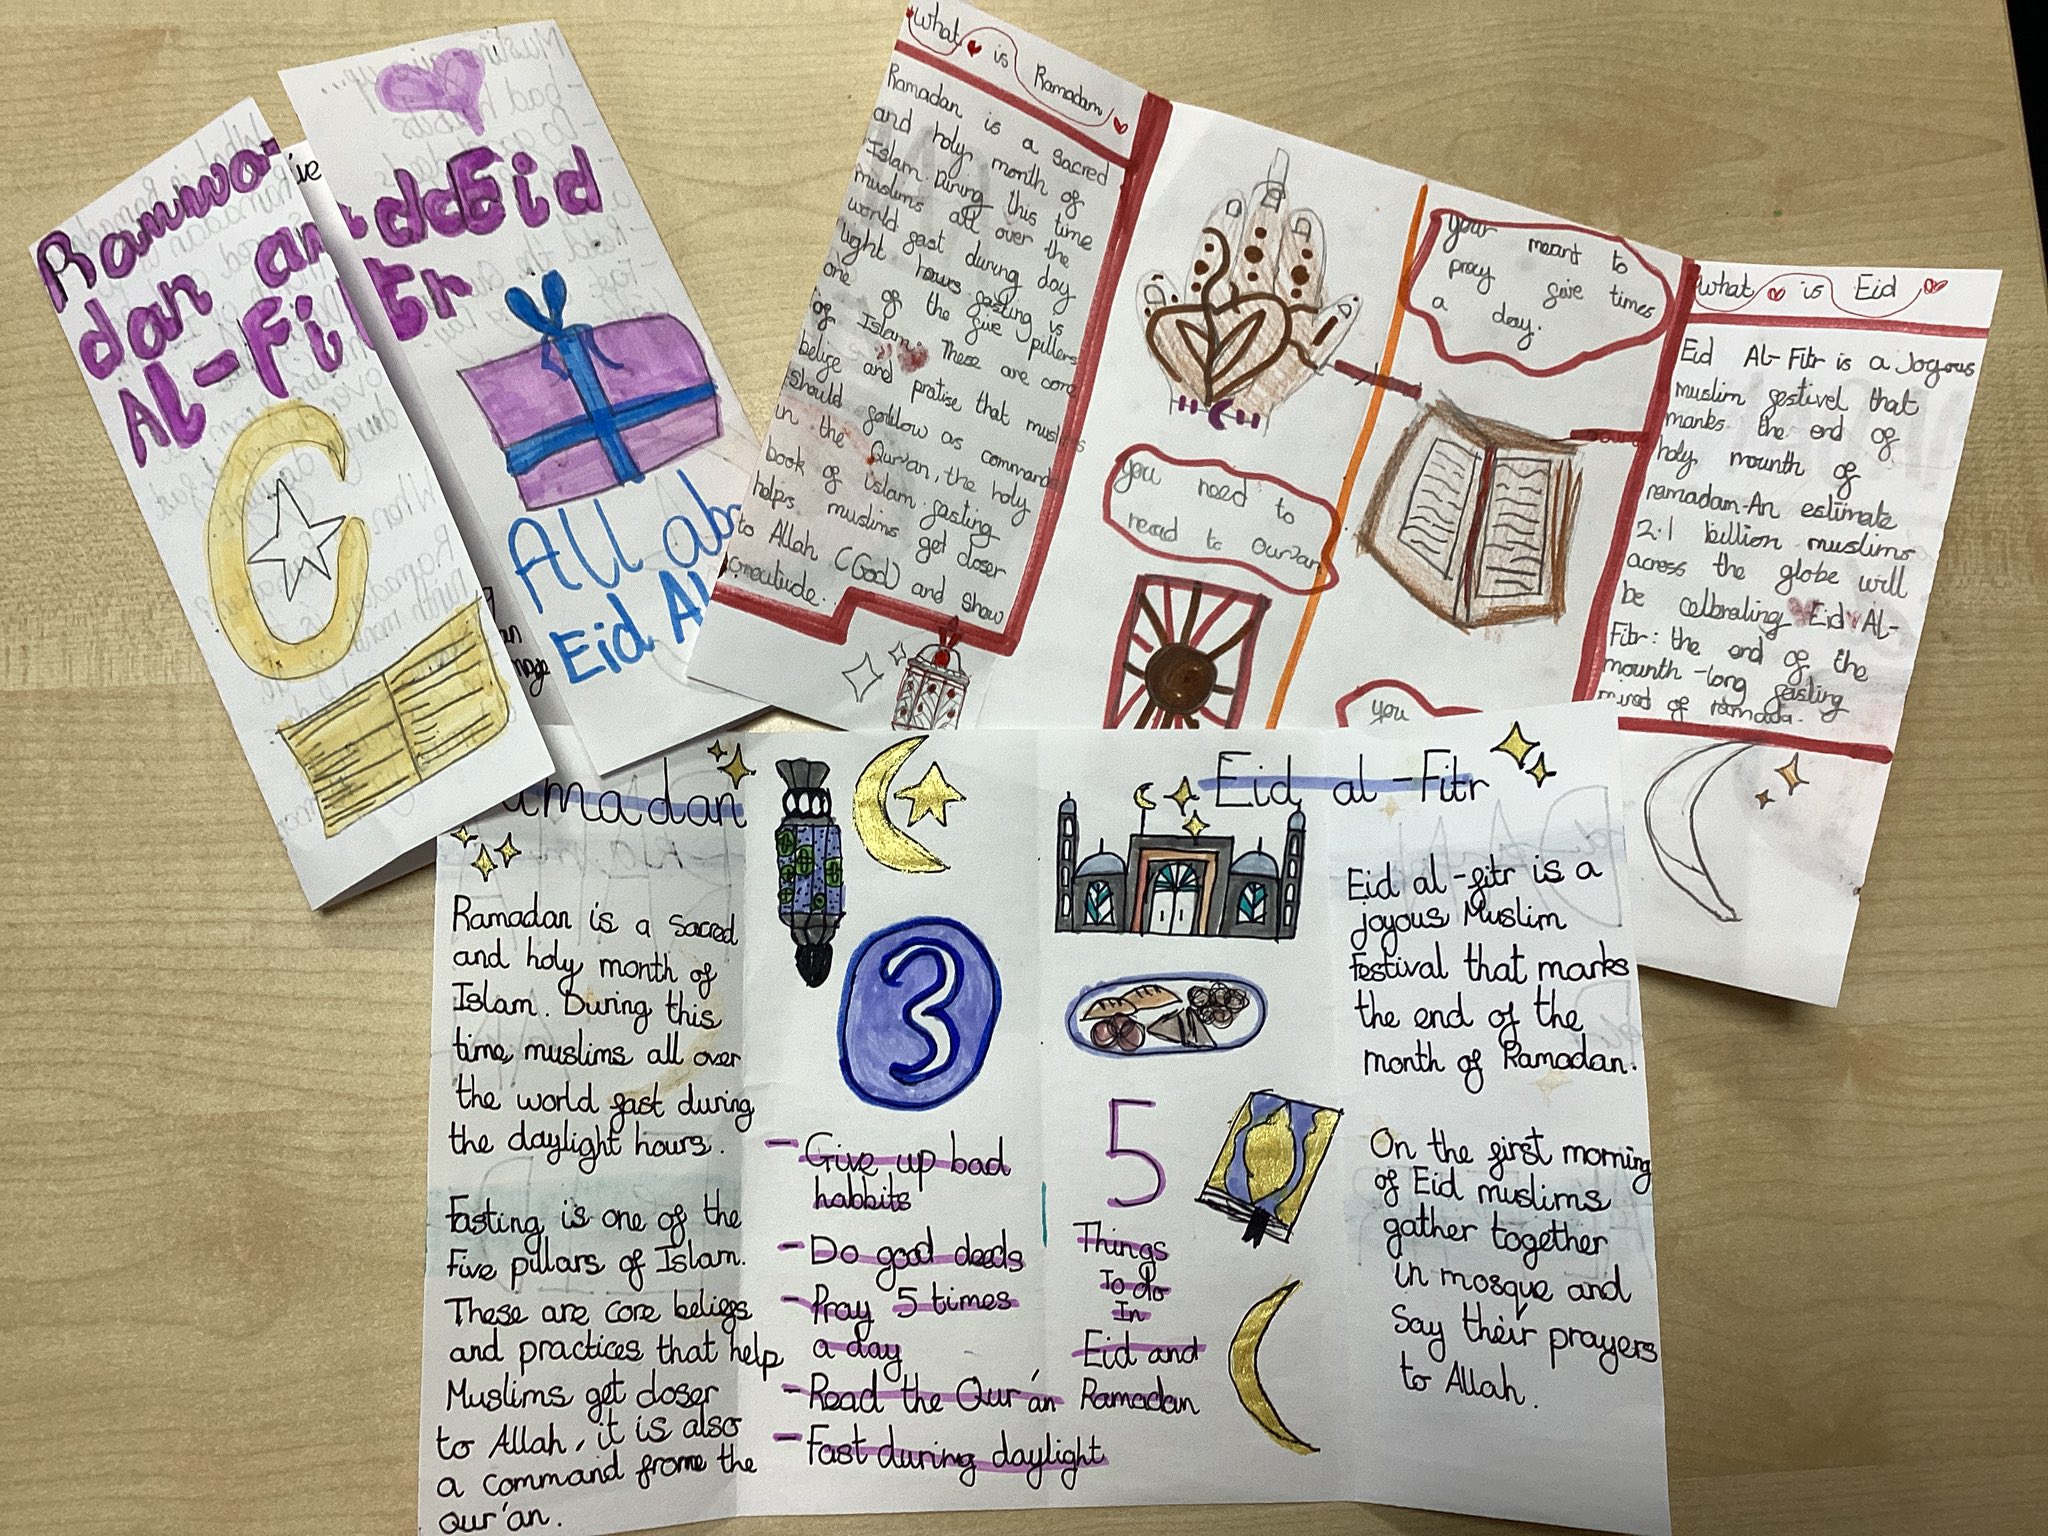 Ramma-
dan an
Al-Fi
ive
dd Eid
tr
All abo
Eid Al
What is Ramadam
Ramadan is a sacred
and holy month of
Islam. During this time
muslims all over the
world fast during day
light hours fasting is
one of the five pillers
of Islam. These are core
belife and pratise that muslims
should follow as command
in the Qur'an, the holy
book of islam. fasting
helps muslims get closer
to Allah (God) and show
your meant to
pray five times
a day.
you need to
read to Qur'an
you
What is Eid
Eid Al-Fitr is a Joyous
muslim festivel that
marks the end of
holy mounth of
ramadam-An estimate
2.1 billion muslims
across the globe will
be celbraling Eid Al-
Fitr: the end of the
mounth-long fasting
of ramada.
amadan
Ramadan is a sacred
and holy month of
Islam. During this
time, muslims all over
the world fast during
the daylight hours.
Fasting is one of the
Five pillars of Islam.
These are core beliefs
and practices that help
Muslims get closer
to Allah, it is also
a command frome the
Qur'an.
3
- Give up bad
habbits
- Do good deeds
- Pray 5 times
a day
- Read the Qur'an
- Fast during daylight
5
Things
To do
In
Eid and
Ramadan
Eid al-Fitr
Eid al-fitr is a
joyous Muslim
festival that marks
the end of the
month of Ramadan.
On the first morning
of Eid muslims
gather together
in mosque and
Say their prayers
to Allah.